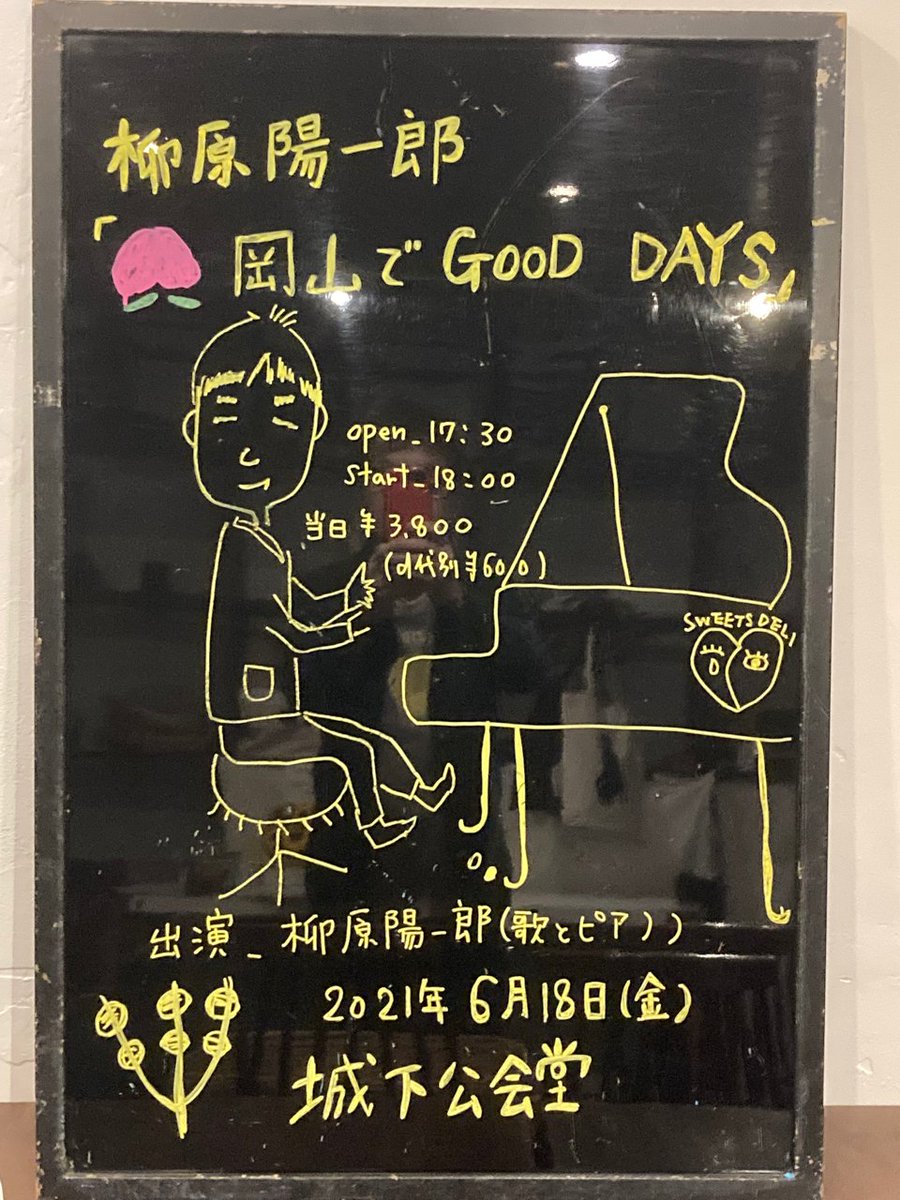 柳原陽一郎
「岡山でGOOD DAYS」
open_17:30
start_18:00
当日¥3,800
(d代別¥600)
SWEETS DELI
出演_柳原陽一郎(歌とピアノ)
2021年6月18日(金)
城下公会堂